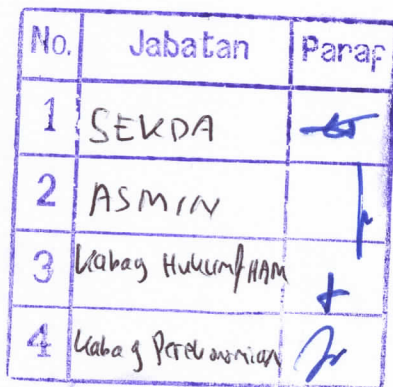 No. Jabatan Paraf
1 SEKDA
2 ASMIN
3 Kabag Hukum/HAM
4 Kabag Perekonomian